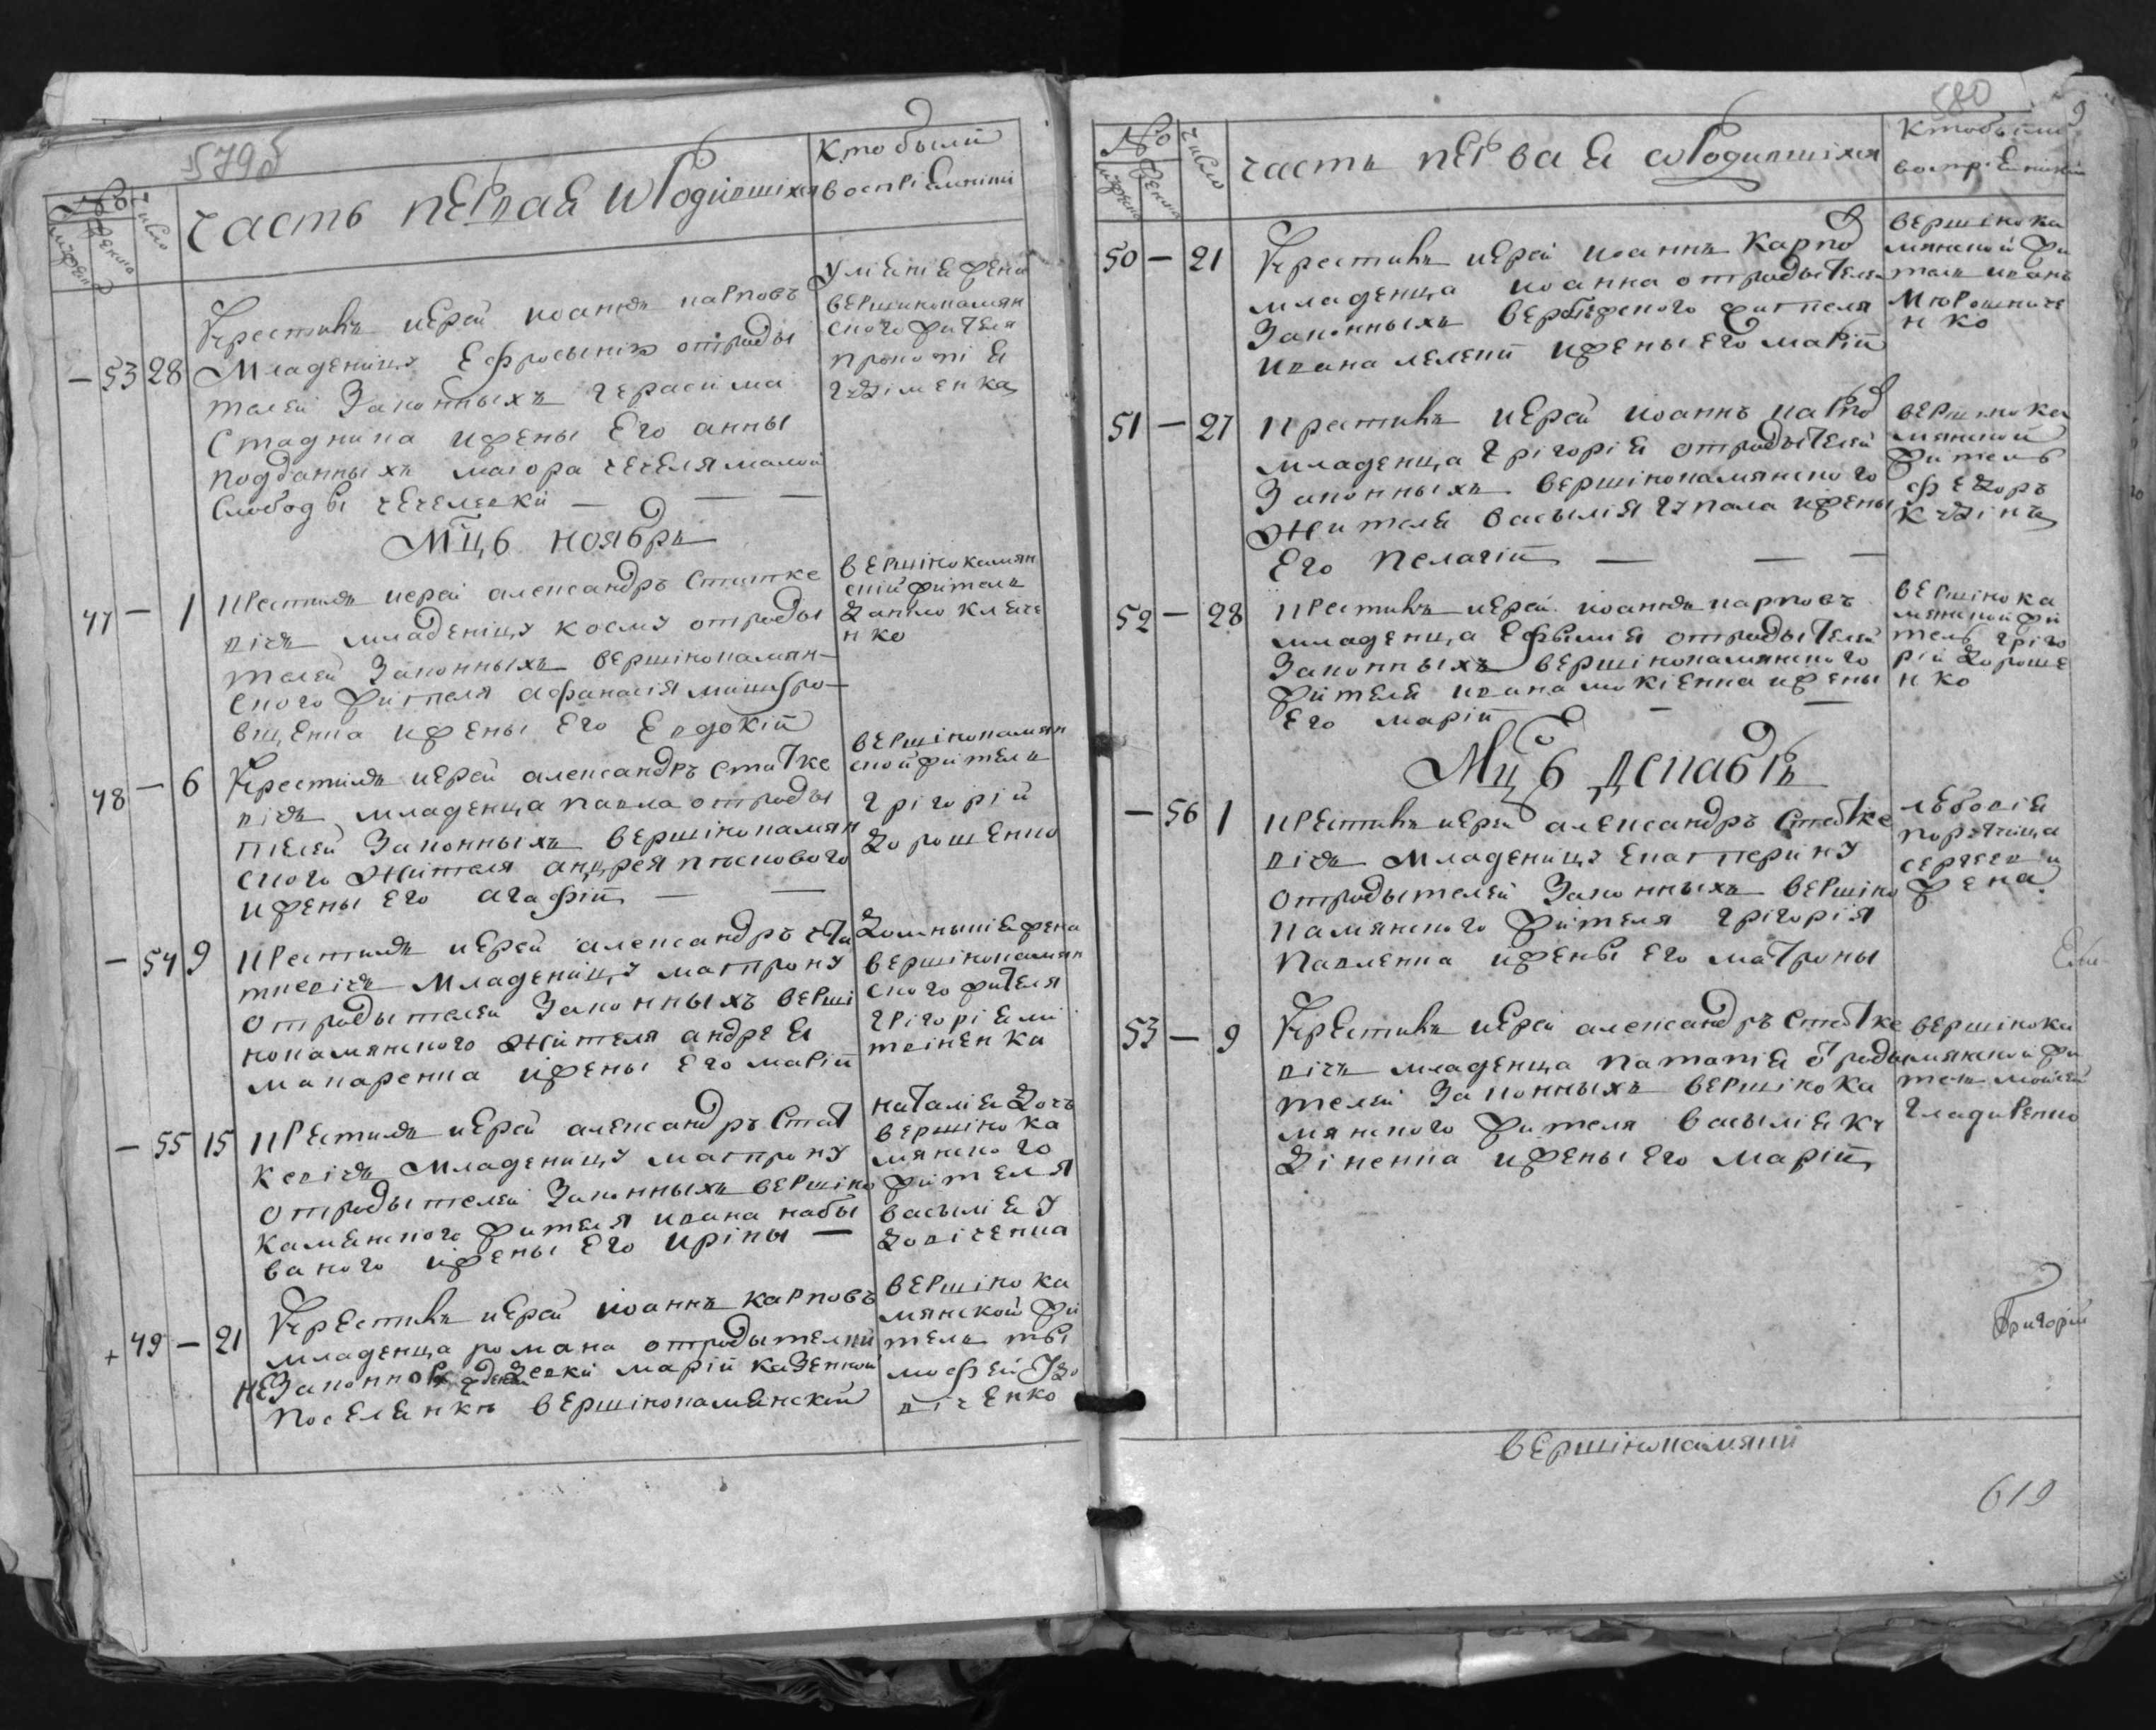 579об
№
число
часть первая о родившихся
Кто были
воспріемники
мужеска
женска
— 53 28
Крестилъ иерей иоаннъ карповъ
Младеницу Ефросынию отроды
телей Законныхъ герасима
Стадника ижены Его анны
подданныхъ маіора чечеля малой
Слободы чечелевки —
вершинокамян
ского жителя
прокопія
Мцъ ноябрь
47 — 1
крестилъ иерей александръ Статке
вичъ младеницу косму отроды
телей Законныхъ вершінокамян
ского жителя афанасія
ижены Его Евдокіи
вершінокамян
ский житель
данило
нко
48 — 6
Крестилъ иерей александръ статке
вичъ младенца павла отроды
телей Законныхъ вершінокамян
ского жителя андрея пъскового
ижены его агафіи —
вершінокамян
ской житель
грігорій
дорошенко
— 54 9
крестилъ иерей александръ ста
ткевичъ Младеницу матрону
отродытелей Законныхъ верши
нокамянского жителя андрея
макаренка ижены Его маріи
домникія жена
вершінокамян
ского жителя
грігорія ли
твіненка
— 55 15
крестилъ иерей александръ Стат
кевичъ Младеницу матрону
отродытелей Законныхъ вершіно
камянского жителя ивана набы
ваного ижены Его ирины —
наталія дочь
вершіно ка
мянского
жителя
васылія у
довіченка
+ 49 — 21
Крестилъ иерей иоаннъ карповъ
младенца романа отродытелки
незаконной девки маріи казенной
поселянки вершінокамянской
вершіно ка
мянской жи
тель ты
мофей удо
віченко
580
9
№
число
часть первая о родившихся
Кто были
воспріемники
мужеска
женска
50 — 21
Крестилъ иерей иоаннъ Карпов
младенца иоанна отродытелей
Законныхъ жителя
ивана лелеки ижены Его маріи
вершіно ка
мянской жи
тель иванъ
мірошниче
нко
51 — 27
крестилъ иерей иоаннъ карпов
младенца грігорія отродытелей
Законныхъ вершінокамянского
жителя васылія ижены
Его пелагіи —
вершіно ка
мянской
житель
федоръ
кудінъ
52 — 28
крестилъ иерей иоаннъ карповъ
младенца Ефымія отродытелей
Законныхъ вершінокамянского
жителя ивана мокіенка ижены
Его маріи —
вершіно ка
мянской жи
тель гріго
рій дороше
нко
Мцъ декабръ
— 56 1
крестилъ иерей александръ Статке
вичъ Младеницу екатерину
отродытелей Законныхъ вершіно
камянского жителя грігорія
павленка ижены Его матроны
любовія
порутчица
сергеева
жена
53 — 9
Крестилъ иерей александръ Статке
вичъ младенца патапія отроды
телей Законныхъ вершіно ка
мянского жителя васылія ку
діненка ижены Его маріи
вершіно ка
мянской жи
тель моисей
гладиренко
Григорій
вершінокамянки
619